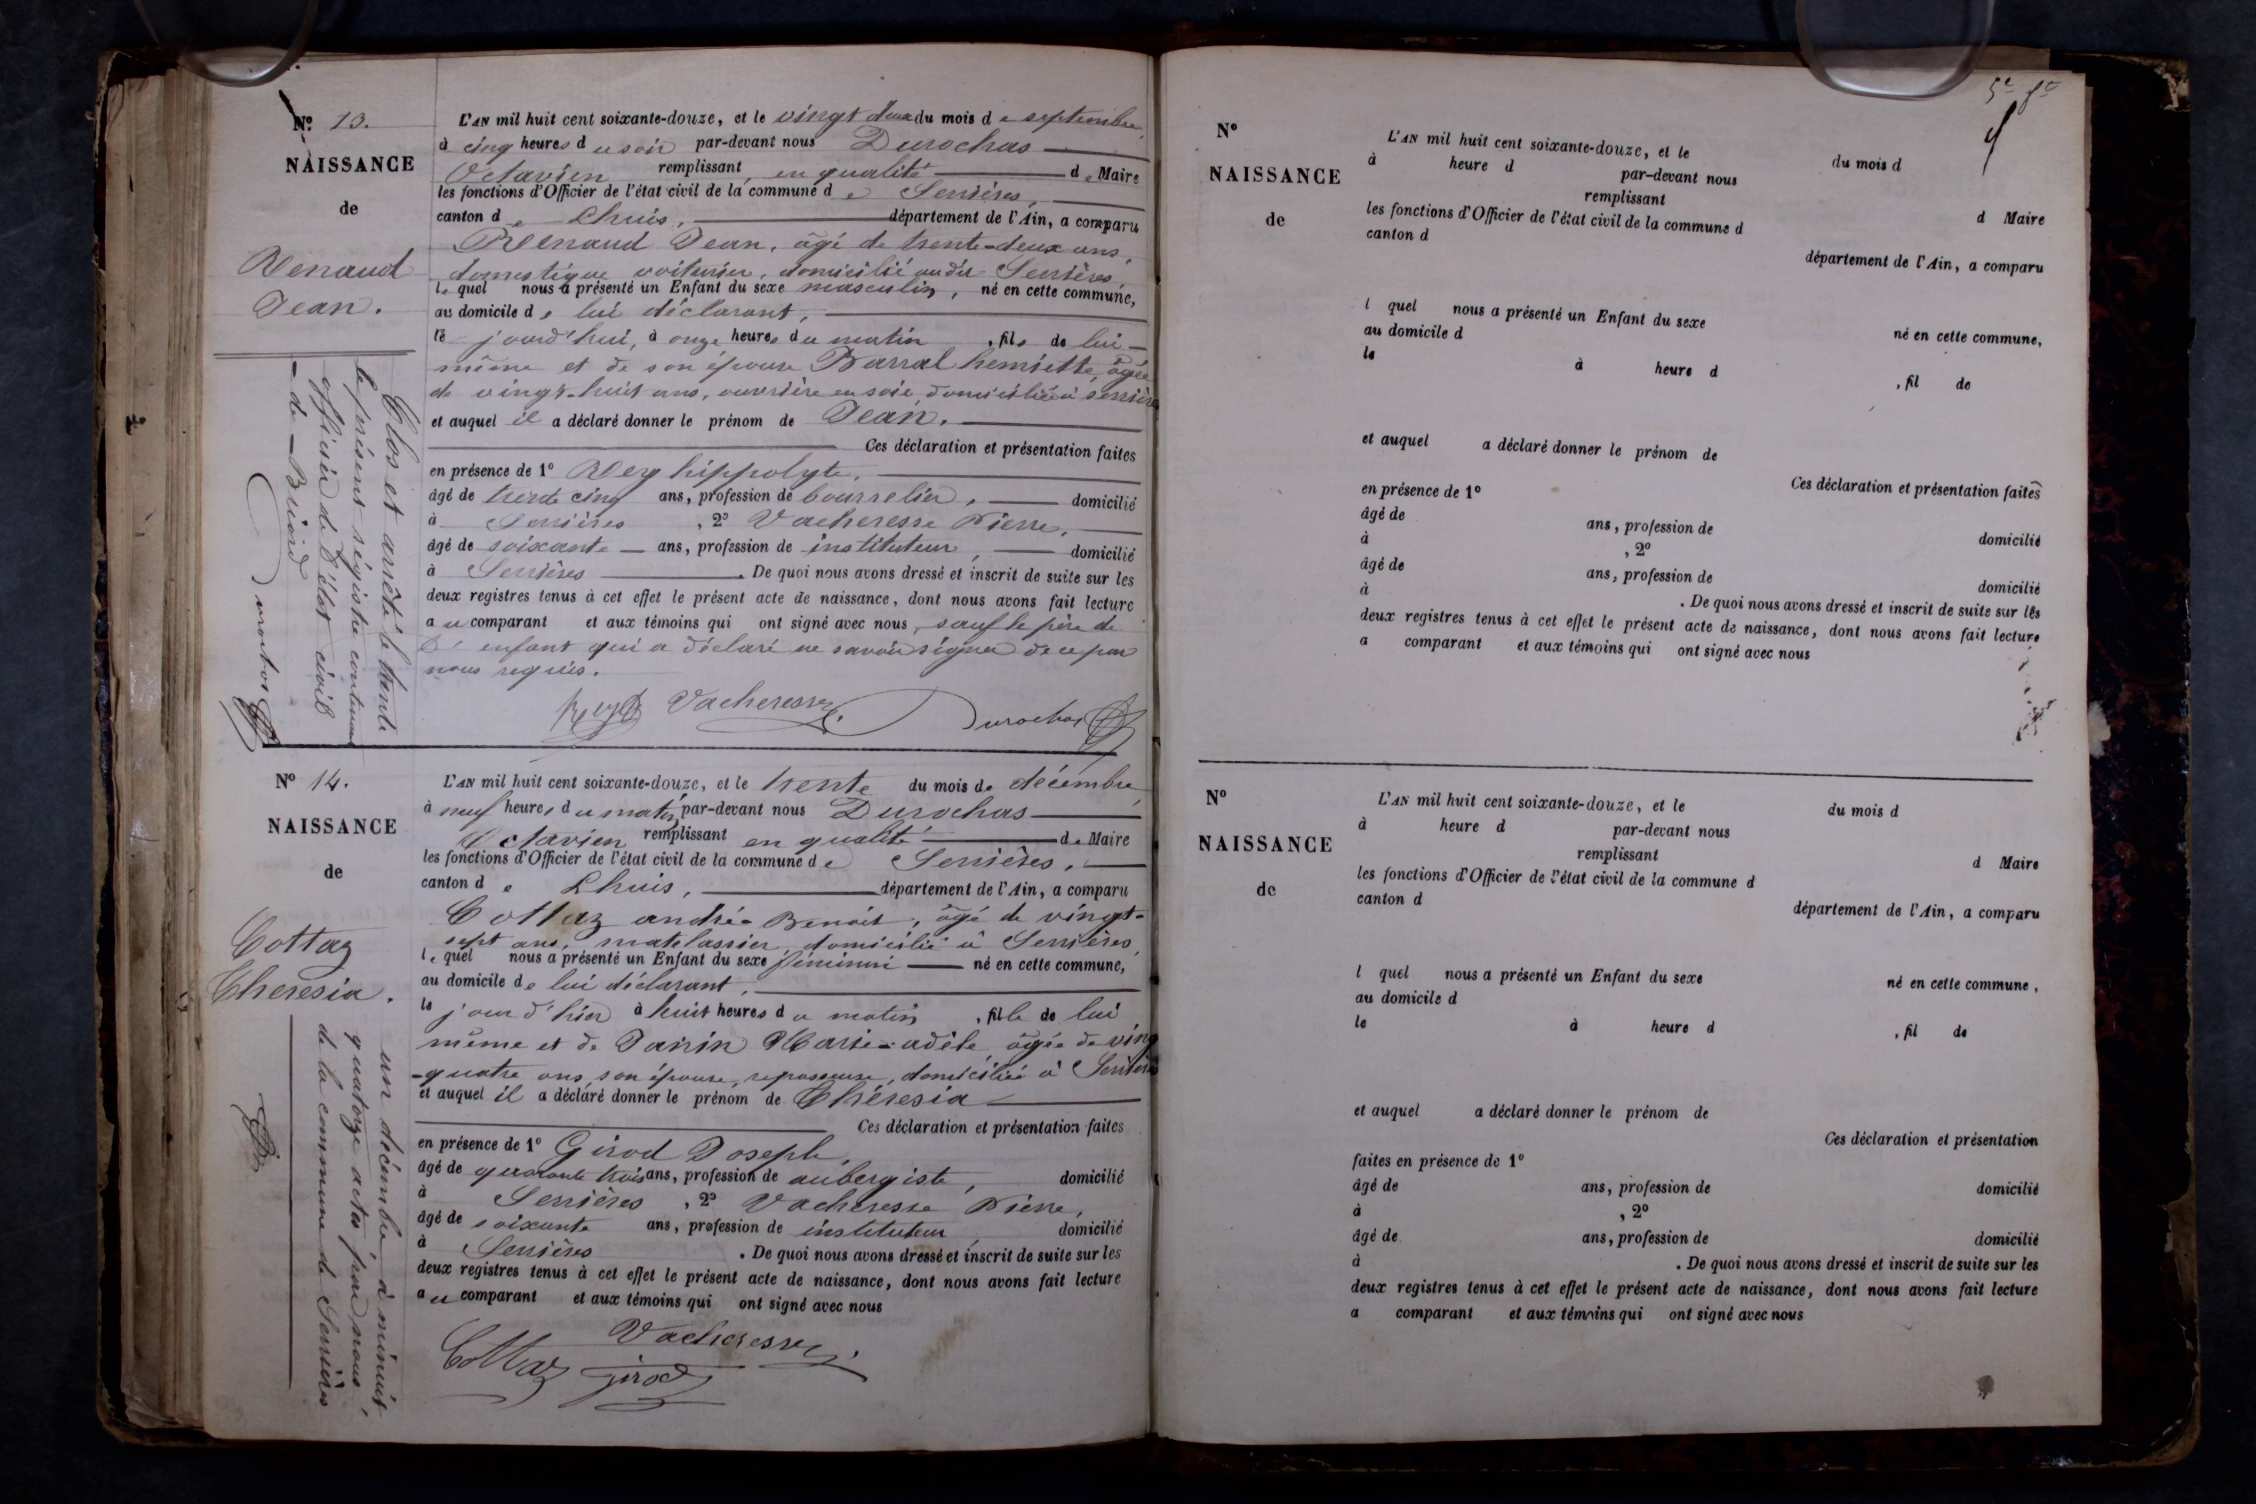 N° 13.
NAISSANCE
de
Renaud
Jean.
L'AN mil huit cent soixante-douze, et le vingt deux du mois de septembre,
à cinq heures du soir par-devant nous Durochas
Octavien remplissant, en qualité de Maire
les fonctions d'Officier de l'état civil de la commune de Serrières,
canton de Lhuis, département de l'Ain, a comparu
Renaud Jean, âgé de trente-deux ans,
domestique voiturier, domicilié audit Serrières,
lequel nous a présenté un Enfant du sexe masculin, né en cette commune,
au domicile de lui déclarant,
le jourd'hui, à onze heures du matin, fils de lui-
même et de son épouse Barral henriette, âgée
de vingt-huit ans, ouvrière en soie, domiciliée à Serrières
et auquel il a déclaré donner le prénom de Jean.
Ces déclaration et présentation faites
en présence de 1° Rey hippolyte,
âgé de trente cinq ans, profession de bourrelier, domicilié
à Serrières, 2° Vacheresse Pierre,
âgé de soixante ans, profession de instituteur, domicilié
à Serrières. De quoi nous avons dressé et inscrit de suite sur les
deux registres tenus à cet effet le présent acte de naissance, dont nous avons fait lecture
au comparant et aux témoins qui ont signé avec nous, sauf le père de
l'enfant qui a déclaré ne savoir signer de ce par
nous requis.
Rey Vacheresse Durochas
Clos et arrêté le trente
le présent régistre contenant
officier de l'état civil
de Briord
Durochas
N° 14.
NAISSANCE
de
Cottaz
Theresia.
L'AN mil huit cent soixante-douze, et le trente du mois de décembre,
à neuf heures du matin, par-devant nous Durochas
Octavien remplissant en qualité de Maire
les fonctions d'Officier de l'état civil de la commune de Serrières,
canton de Lhuis, département de l'Ain, a comparu
Cottaz andré-Benoit, âgé de vingt-
sept ans, matelassier, domicilié à Serrières,
lequel nous a présenté un Enfant du sexe féminin né en cette commune,
au domicile de lui déclarant,
le jour d'hier à huit heures du matin, fille de lui
même et de Janin Marie-adèle, âgée de vingt
-quatre ans, son épouse, repasseuse, domiciliée à Serrières
et auquel il a déclaré donner le prénom de Thérésia
Ces déclaration et présentation faites
en présence de 1° Girod Joseph,
âgé de quarante trois ans, profession de aubergiste, domicilié
à Serrières, 2° Vacheresse Pierre,
âgé de soixante ans, profession de instituteur, domicilié
à Serrières. De quoi nous avons dressé et inscrit de suite sur les
deux registres tenus à cet effet le présent acte de naissance, dont nous avons fait lecture
au comparant et aux témoins qui ont signé avec nous
Vacheresse
Cottaz Girod
un décembre à minuit
quatorze actes par nous,
de la commune de Serrières
N°
NAISSANCE
de
L'AN mil huit cent soixante-douze, et le du mois d
à heure d par-devant nous
remplissant d Maire
les fonctions d'Officier de l'état civil de la commune d
canton d département de l'Ain, a comparu
l quel nous a présenté un Enfant du sexe né en cette commune,
au domicile d
le à heure d , fil de
et auquel a déclaré donner le prénom de
Ces déclaration et présentation faites
en présence de 1°
âgé de ans, profession de domicilié
à , 2°
âgé de ans, profession de domicilié
à . De quoi nous avons dressé et inscrit de suite sur les
deux registres tenus à cet effet le présent acte de naissance, dont nous avons fait lecture
a comparant et aux témoins qui ont signé avec nous
N°
NAISSANCE
de
L'AN mil huit cent soixante-douze, et le du mois d
à heure d par-devant nous
remplissant d Maire
les fonctions d'Officier de l'état civil de la commune d
canton d département de l'Ain, a comparu
l quel nous a présenté un Enfant du sexe né en cette commune,
au domicile d
le à heure d , fil de
et auquel a déclaré donner le prénom de
Ces déclaration et présentation
faites en présence de 1°
âgé de ans, profession de domicilié
à , 2°
âgé de ans, profession de domicilié
à . De quoi nous avons dressé et inscrit de suite sur les
deux registres tenus à cet effet le présent acte de naissance, dont nous avons fait lecture
a comparant et aux témoins qui ont signé avec nous